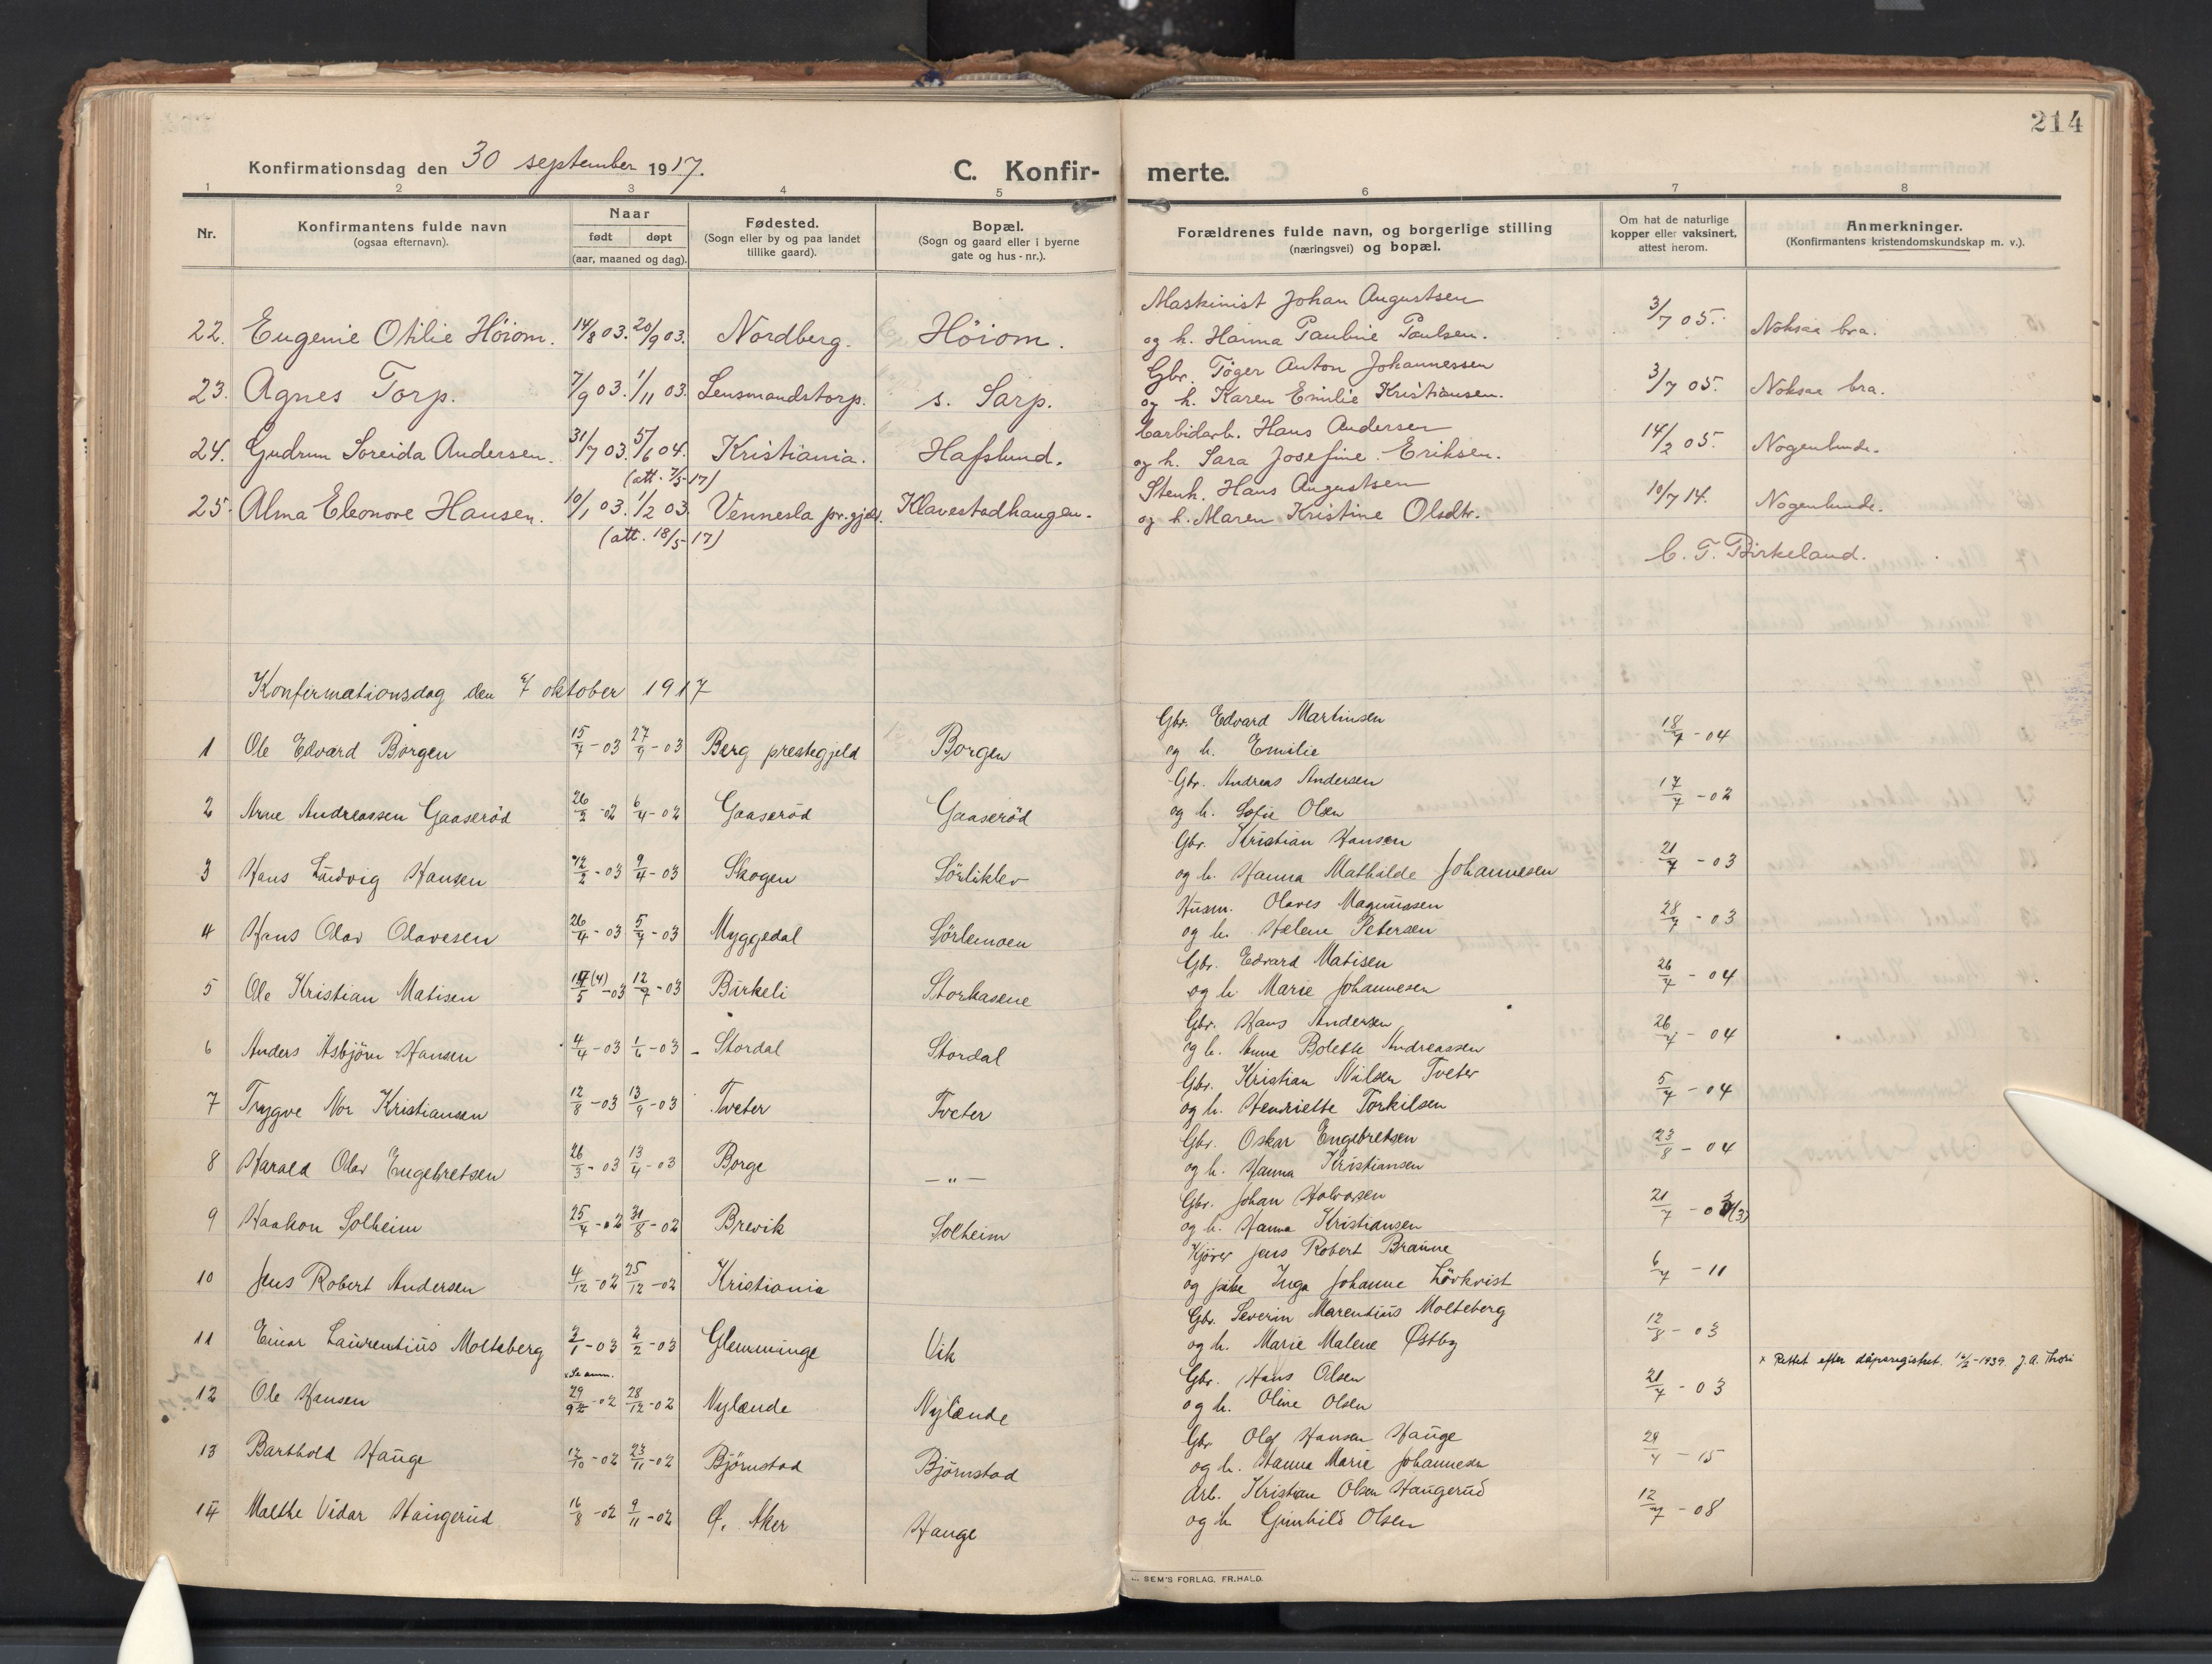 214
Konfirmationsdag den 30 september 1917.
C. Konfir- merte.
1 2 3 4 5 6 7 8
Nr.
Konfirmantens fulde navn
(ogsaa efternavn).
Naar
født døpt
(aar, maaned og dag).
Fødested.
(Sogn eller by og paa landet
tillike gaard).
Bopæl.
(Sogn og gaard eller i byerne
gate og hus-nr.).
Forældrenes fulde navn, og borgerlige stilling
(næringsvei) og bopæl.
Om hat de naturlige
kopper eller vaksinert,
attest herom.
Anmerkninger.
(Konfirmantens kristendomskundskap m. v.).
Maskinist Johan Augustsen
22. Eugenie Otilie Höiom. 14/8 03. 20/9 03. Nordberg. Höiom. og h. Hanna Pauline Paulsen. 3/7 05. Noksaa bra.
Gbr. Töger Anton Johannessen
23. Agnes Torp. 7/9 03. 1/11 03. Lensmandstorp. s. Sarp. og h. Karen Emilie Kristiansen. 3/7 05. Noksaa bra.
Carbidarb. Hans Andersen
24. Gudrun Soreida Andersen. 31/7 03. 5/6 04. Kristiania. Hafslund. og h. Sara Josefine Eriksen. 14/2 05. Nogenlunde.
(att. 7/5-17)
Stenh. Hans Augustsen
25. Alma Eleonore Hansen. 10/1 03. 1/2 03. Vennesla pr.gjeld. Klavestadhaugen. og h. Maren Kristine Olsdtr. 10/7 14. Nogenlunde.
(att. 18/5-17)
C. F. Birkeland.
Konfirmationsdag den 7 oktober 1917
Gbr. Edvard Martinsen
1 Ole Edvard Borgen 15/7-03 27/9-03 Berg prestegjeld Borgen og h. Emilie 18/7-04
Gbr. Andreas Andersen
2 Arne Andreassen Gaaseröd 26/2-02 6/4-02 Gaaseröd Gaaseröd og h. Sofie Olsen 17/7-02
Gbr. Kristian Hansen
3 Hans Ludvig Hansen 12/2-03 9/4-03 Skogen Sörliklev og h. Hanna Mathilde Johannesen 21/7-03
Husm. Olaves Magnussen
4 Hans Olav Olavesen 26/4-03 5/7-03 Myggedal Sörlemoen og h. Helene Petersen 28/7-03
Gbr. Edvard Matisen
5 Ole Kristian Matisen 14(4)/5-03 12/7-03 Birkeli Storkasene og h. Marie Johannesen 26/7-04
Gbr. Hans Andersen
6 Anders Asbjörn Hansen 4/4-03 1/6-03 Stordal Stordal og h. Anna Bolette Andreassen 26/7-04
Gbr. Kristian Nilsen Tveter
7 Trygve Nor Kristiansen 12/8-03 13/9-03 Tveter Tveter og h. Henriette Torkilsen 5/7-04
Gbr. Oskar Engebretsen
8 Harald Olav Engebretsen 26/3-03 13/4-03 Borge —"— og h. Hanna Kristiansen 23/8-04
Gbr. Johan Halvorsen
9 Haakon Solheim 25/7-02 31/8-02 Brevik Solheim og h. Hanna Kristiansen 21/7-03(3)
Kjörer Jens Robert Braune
10 Jens Robert Andersen 4/12-02 25/12-02 Kristiania og pike Inga Johanne Lövkvist 6/7-11
Gbr. Severin Marentius Molteberg
11 Einar Laurentius Molteberg 2/1-03 2/2-03 Glemminge Vik og h. Marie Malene Østby 12/8-03
x Se anm.
x Rettet efter dåpsregistret. 16/2-1939. J. A. Thori
Gbr. Hans Olsen
12 Ole Hansen 29/9-02 28/12-02 Nylænde Nylænde og h. Oline Olsen 21/7-03
Gbr. Olof Hansen Hauge
13 Barthold Hauge 12/10-02 23/11-02 Björnstad Björnstad og h. Hanna Marie Johannesen 29/4-15
Arb. Kristian Olsen Haugerud
14 Malthe Vidar Haugerud 16/8-02 9/11-02 Ø. Aker Hauge og h. Gunhild Olsen 12/7-08
SEM'S FORLAG, FR.HALD.